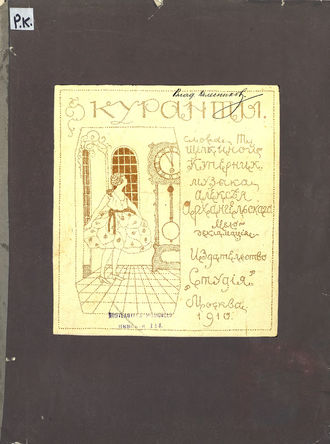 Р.К.
Влад.
КУРАНТЫ.
слова Т.
Щепкиной-
Куперник.
музыка
Алексея
Архангельскаго
Мело-
декламация.
Издательство
„Студiя“
Москва.
1910.